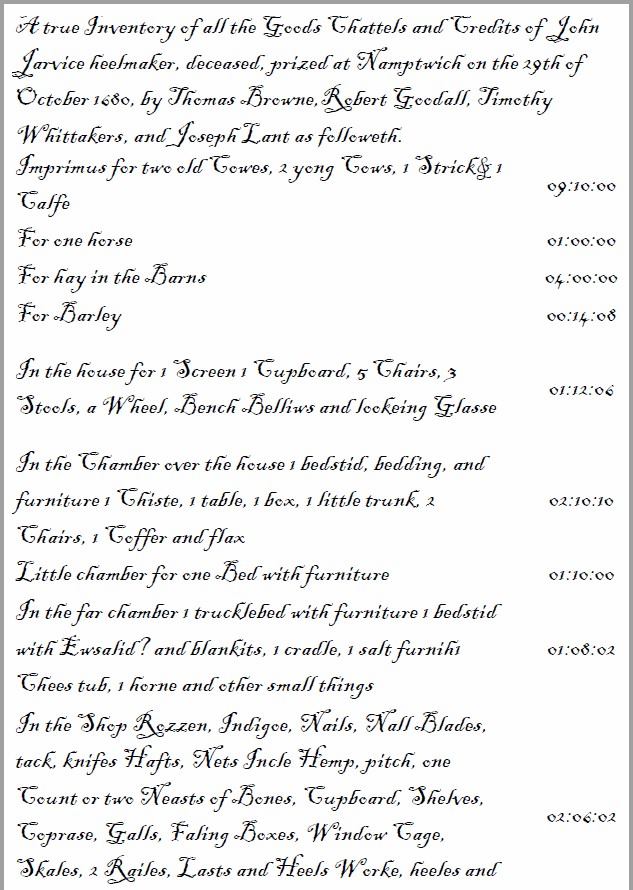 A true Inventory of all the Goods Chattels and Credits of John
Jarvice heelmaker, deceased, prized at Namptwich on the 29th of
October 1680, by Thomas Browne, Robert Goodall, Timothy
Whittakers, and Joseph Lant as followeth.
Imprimus for two old Cowes, 2 yong Cows, 1 Strick& 1
Calfe 09:10:00
For one horse 01:00:00
For hay in the Barns 04:00:00
For Barley 00:14:08
In the house for 1 Screen 1 Cupboard, 5 Chairs, 3
Stools, a Wheel, Bench Belliws and lookeing Glasse 01:12:06
In the Chamber over the house 1 bedstid, bedding, and
furniture 1 Chiste, 1 table, 1 box, 1 little trunk, 2 02:10:10
Chairs, 1 Coffer and flax
Little chamber for one Bed with furniture 01:10:00
In the far chamber 1 trucklebed with furniture 1 bedstid
with Ewsalid? and blankits, 1 cradle, 1 salt furnih1 01:08:02
Chees tub, 1 horne and other small things
In the Shop Rozzen, Indigoe, Nails, Nall Blades,
tack, knifes Hafts, Nets Incle Hemp, pitch, one
Count or two Neasts of Bones, Cupboard, Shelves,
Coprase, Galls, Faling Boxes, Window Cage, 02:06:02
Skales, 2 Railes, Lasts and Heels Worke, heeles and